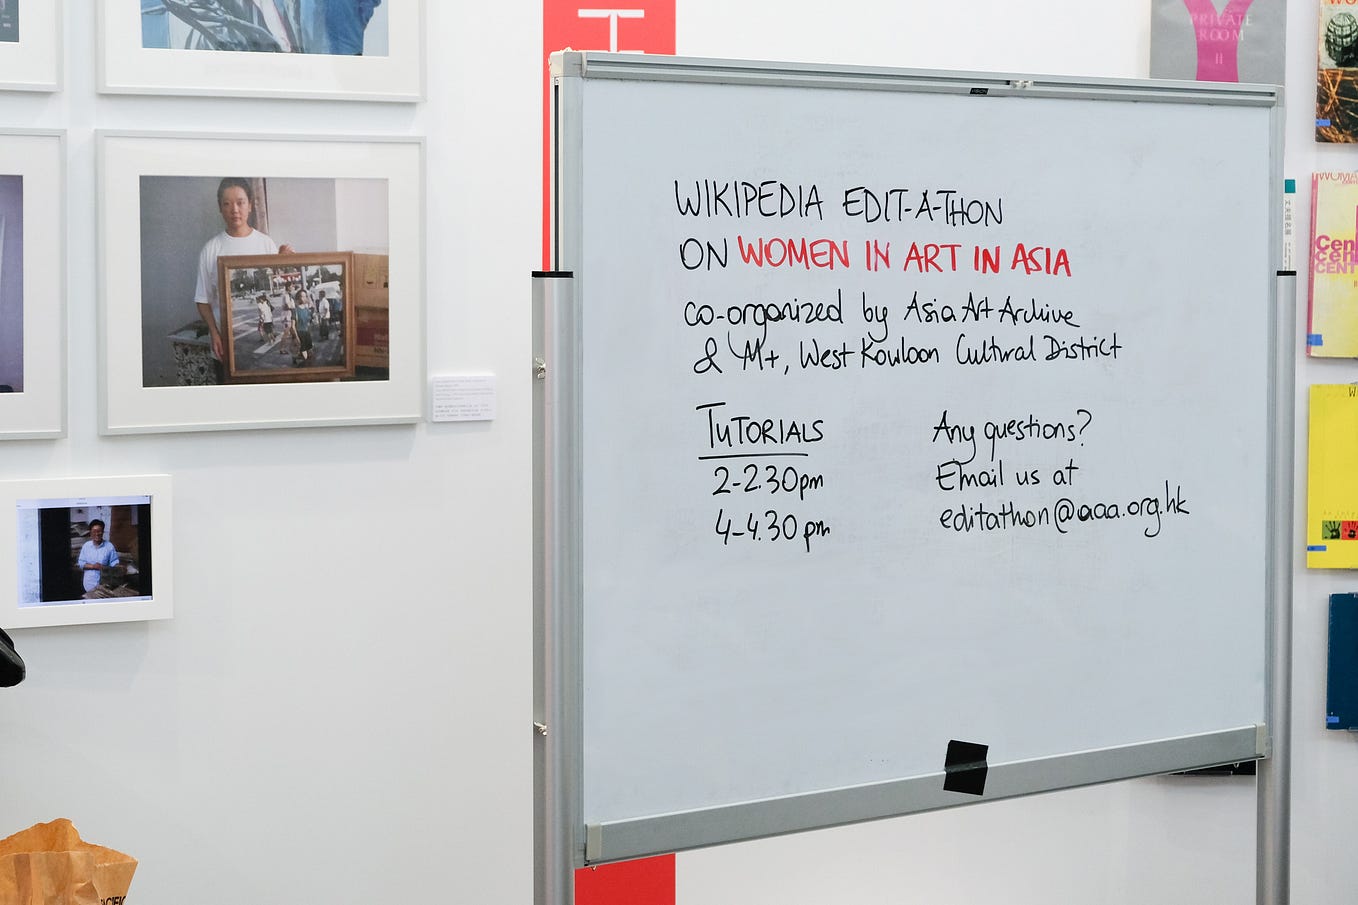 WIKIPEDIA EDIT-A-THON
ON WOMEN IN ART IN ASIA
co-organized by Asia Art Archive
& M+, West Kowloon Cultural District
TUTORIALS
2-2.30pm
4-4.30pm
Any questions?
Email us at
editathon@aaa.org.hk
PRIVATE
ROOM
II